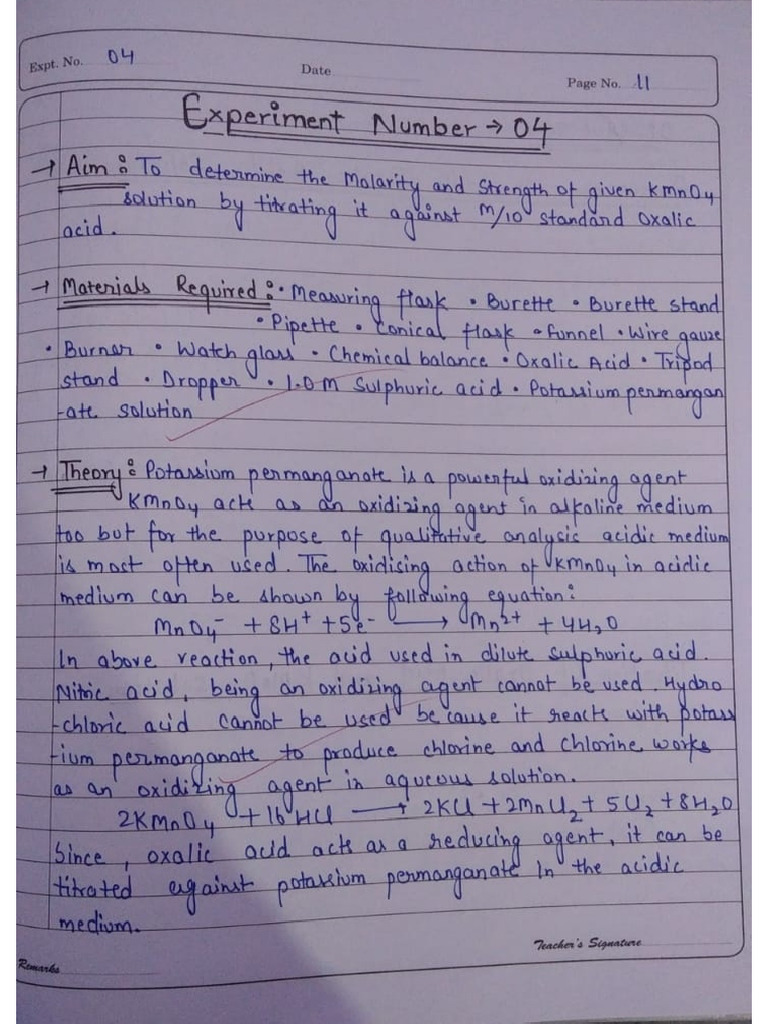 Expt. No. 04
Date
Page No. 11
Experiment Number → 04
→ Aim : To determine the Molarity and Strength of given KMnO4
solution by titrating it against M/10 standard Oxalic
acid.
→ Materials Required : • Measuring flask • Burette • Burette stand
• Pipette • Conical flask • funnel • Wire gauze
• Burner • Watch glass • Chemical balance • Oxalic Acid • Tripod
stand • Dropper • 1.0 M Sulphuric acid • Potassium permangan
-ate solution
→ Theory : Potassium permanganate is a powerful oxidizing agent
KMnO4 acts as an oxidizing agent in alkaline medium
too but for the purpose of qualitative analysis acidic medium
is most often used. The oxidising action of KMnO4 in acidic
medium can be shown by following equation :
MnO4⁻ + 8H⁺ + 5e⁻ → Mn²⁺ + 4H2O
In above reaction, the acid used in dilute sulphuric acid.
Nitric acid, being an oxidizing agent cannot be used. Hydro
-chloric acid cannot be used because it reacts with potass
-ium permanganate to produce chlorine and Chlorine works
as an oxidizing agent in aqueous solution.
2KMnO4 + 16 HCl → 2KCl + 2MnCl2 + 5Cl2 + 8H2O
Since, oxalic acid acts as a reducing agent, it can be
titrated against potassium permanganate in the acidic
medium.
Teacher's Signature
Remarks